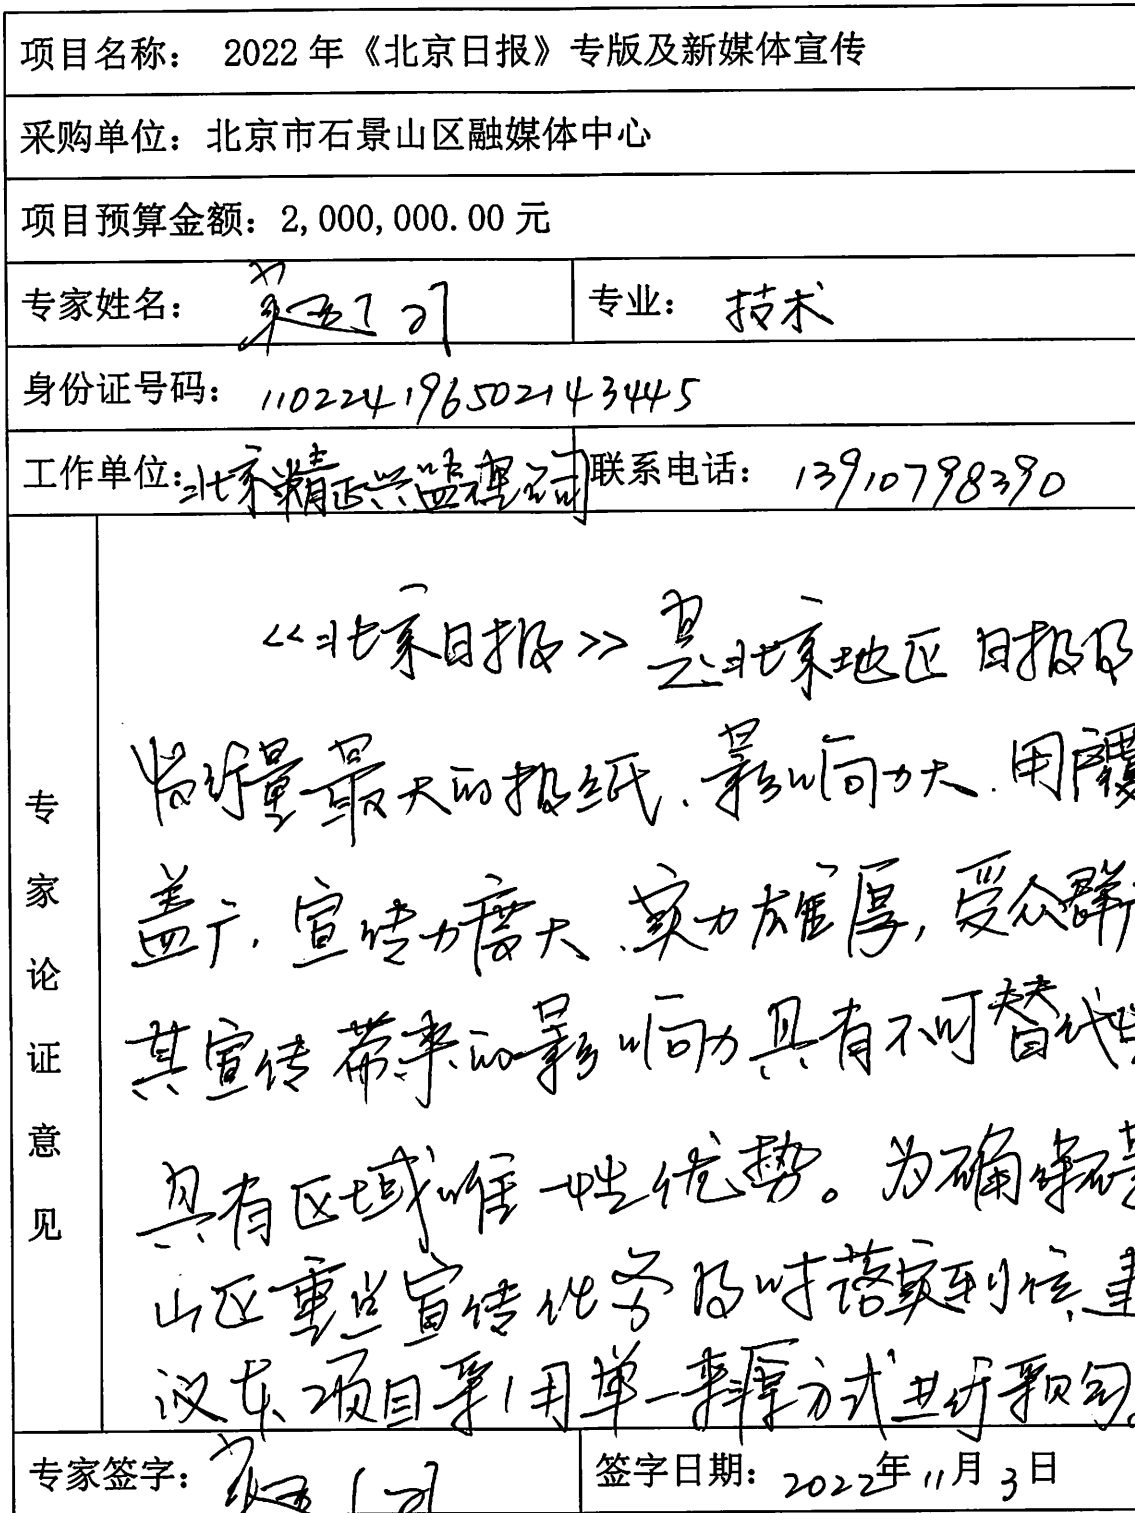 项目名称： 2022 年《北京日报》专版及新媒体宣传
采购单位：北京市石景山区融媒体中心
项目预算金额：2,000,000.00 元
专家姓名：
专业： 技术
身份证号码： 110224196502143445
工作单位：北京精正兴监理公司
联系电话： 13910798390
专家论证意见
《北京日报》是北京地区日报及
发行量最大的报纸、影响力大、用户覆
盖广、宣传力度大、实力雄厚，受众群广
其宣传带来的影响力具有不可替代性
具有区域唯一性优势。为确保石景
山区重点宣传任务及时落实到位，建
议本项目采用单一来源方式进行采购。
专家签字：
签字日期： 2022年 11月 3日